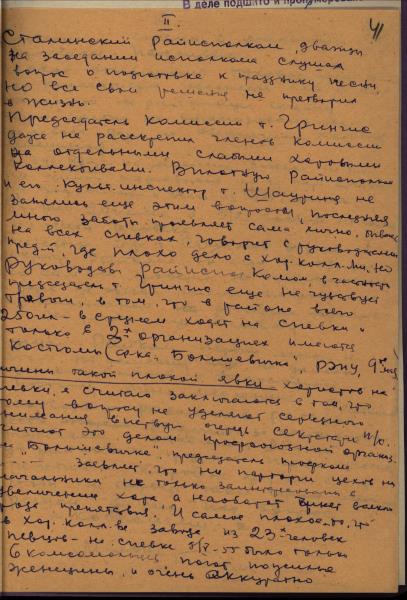 В деле подшито и пронумеровано
41
II.
Сталинский Райисполком, дважды
на заседании исполкома слушал
вопрос о подготовке к празднику песни,
но все свои решения не претворил
в жизнь.
Председатель Комиссии т. Грингис
даже не расскрепил членов Комиссии
за отдельными слабыми хоровыми
Коллективами. Вплотную Райисполком
и его Культ. инспектор т. Шауринь не
занялись еще этим вопросом, последняя
много заботы проявляет сама лично, бывает
на всех спевках, говорит с руководителями
пред., где плохо дело с хор. колл.
Руководство Райиспол Кома, в частности
председатель т. Грингис еще не чувствует
тревоги, в том, что в районе всего
250 чел. в среднем ходят на спевки и
только в 3х организациях имеются
Костюмы (ф-ка "Большевичка", РЭПУ,
причины такой плохой явки хористов на
спевки, я считаю заключаются в том, что
этому вопросу не уделяют серьезного
внимания в первую очередь секретари п/о.
считают это делом профсоюзной организ.
"Большевичке" председатель профком
заявляет, что ни парторги цехов ни
начальники не только заинтересованы в
увеличении хора, а наоборот чинят всякого
рода препятствия. И самое плохое то, что
в хор. колл-ве завода из 23х человек
певцов на спевке было только
6 комсомольцев, поют пожилые
женщины, и очень аккуратно